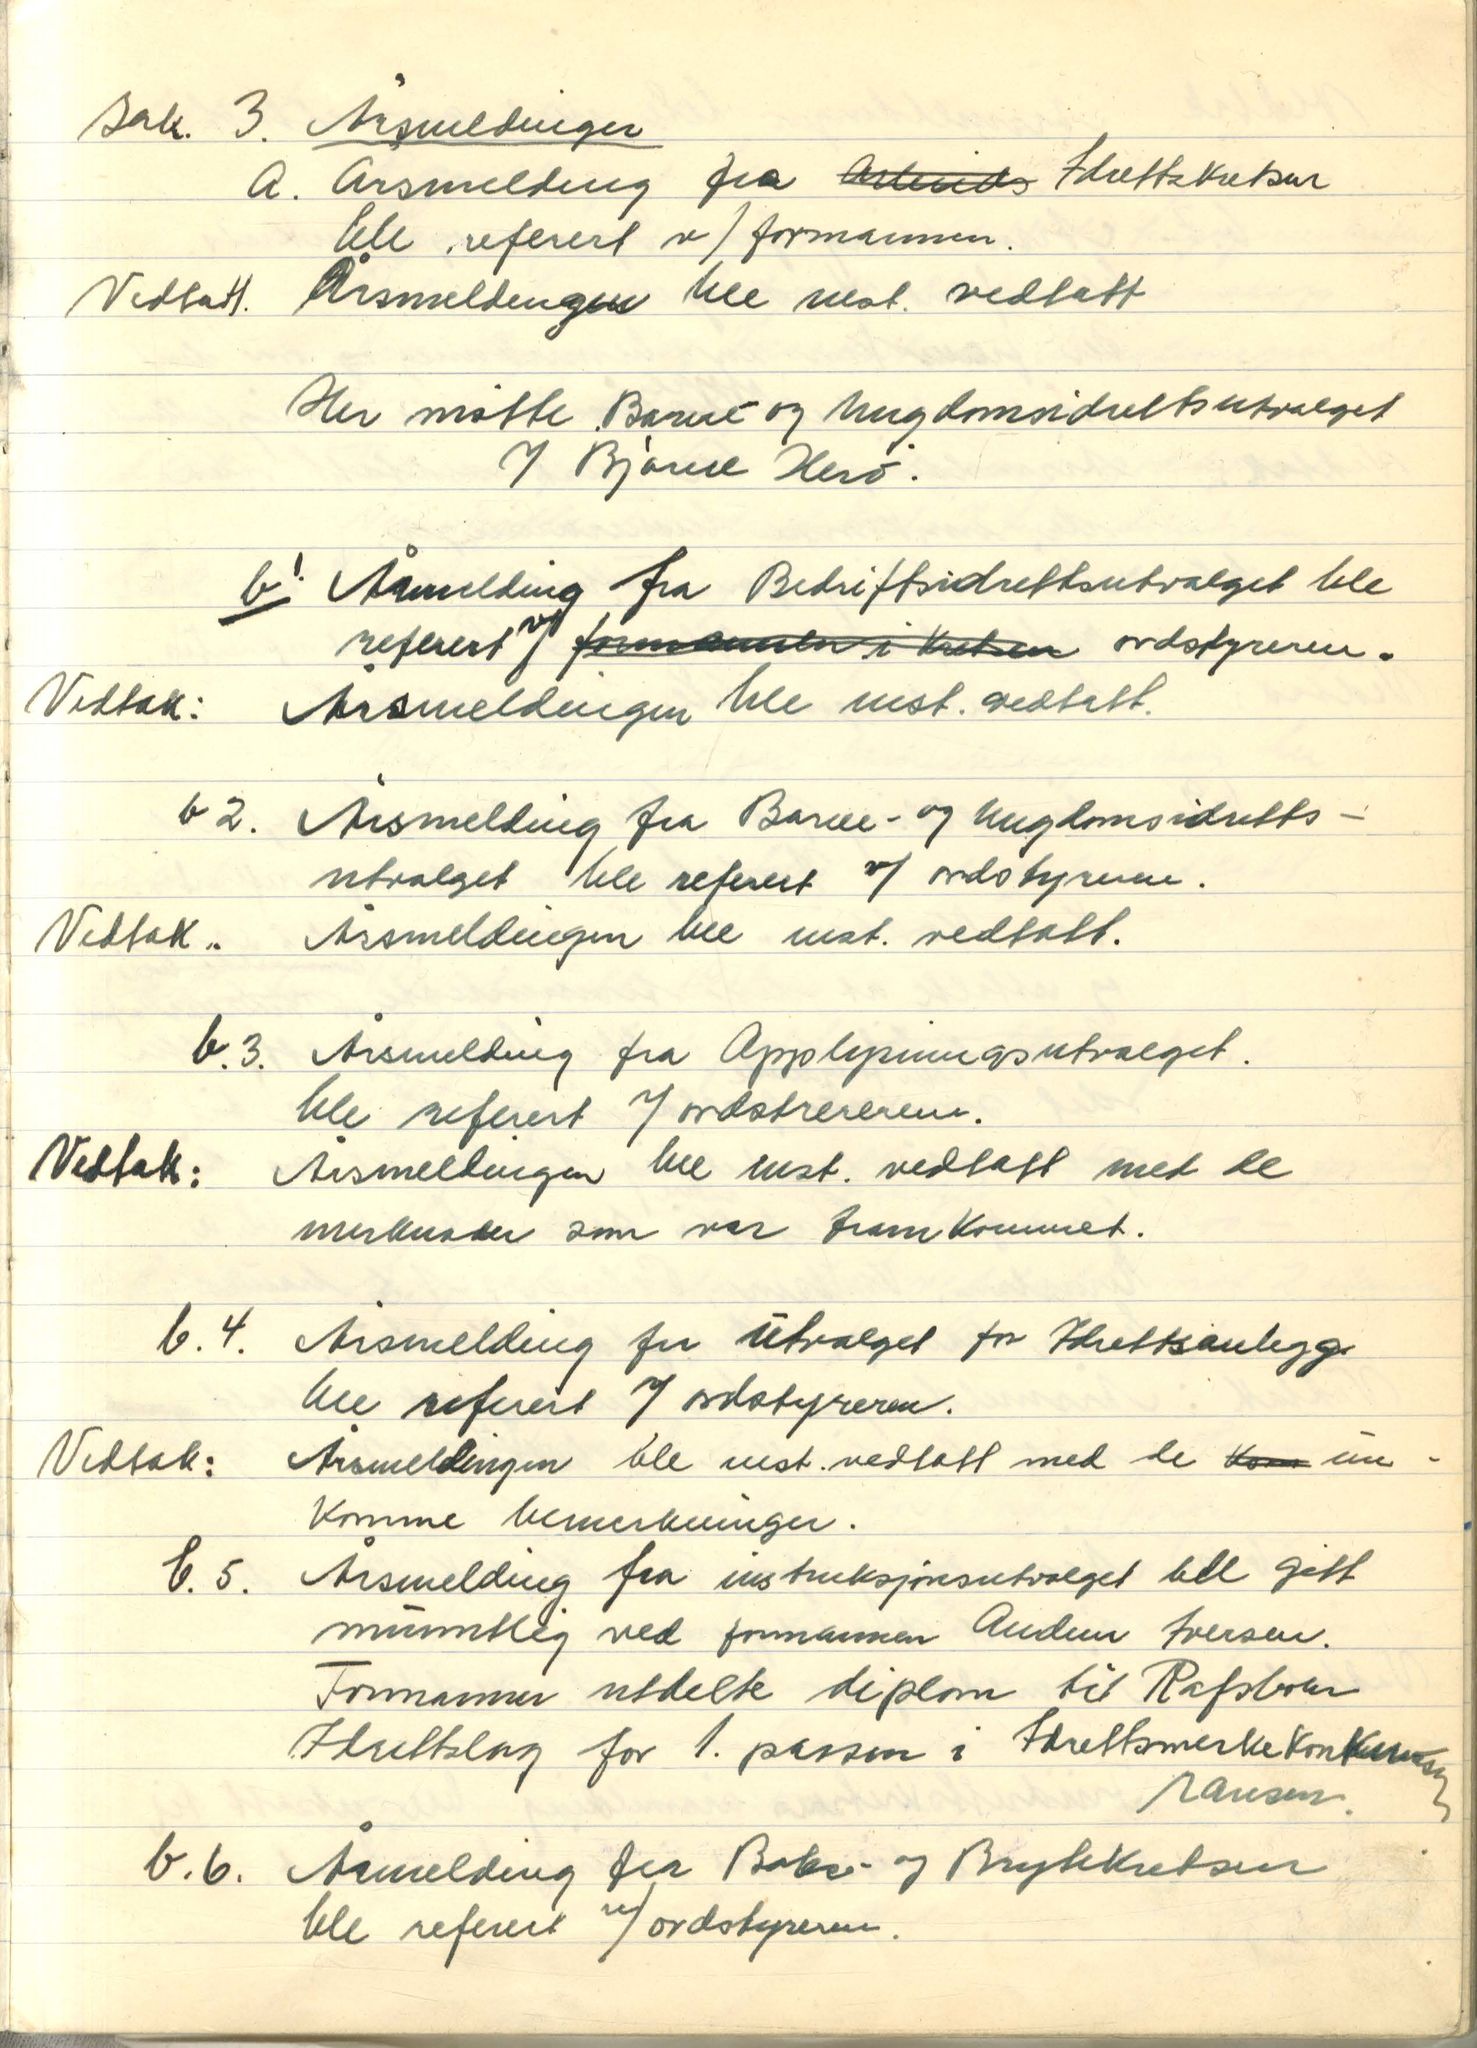 Sak. 3. Årsmeldinger
a. Årsmelding fra Arbeids Idrettskretsen
ble referert v/ formannen.
Vedtatt. Årsmeldingen ble enst. vedtatt
Her møtte Barne og Ungdomsidrettsutvalget
v/ Bjarne Herø.
b1. Åsmelding fra Bedriftsidrettsutvalget ble
referert v/ formannen i Kretsen ordstyreren.
Vedtak: Årsmeldingen ble enst. vedtatt.
b 2. Årsmelding fra Barne- og Ungdomsidretts-
utvalget ble referert v/ ordstyreren.
Vedtak.. Årsmeldingen ble enst. vedtatt.
b.3. Årsmelding fra Opplysningsutvalget.
ble referert v/ ordstrereren.
Vedtak: Årsmeldingen ble enst. vedtatt med de
merknader som var framkommet.
b.4. Årsmelding fra Utvalget for Idrettsanlegg
ble referert v/ ordstyreren.
Vedtak: Årsmeldingen ble enst. vedtatt med de Kom inn-
komme bemerkninger.
b.5. Årsmelding fra instruksjonsutvalget ble gitt
muntlig ved formannen Audun Iversen.
Formannen utdelte diplom til Rafsbotn
Idrettslag for 1. plassen i Idrettsmerkekonkurransen
ransen.
b.6. Åsmelding fra Bokse- og Brytekretsen
ble referert v/ ordstyreren.